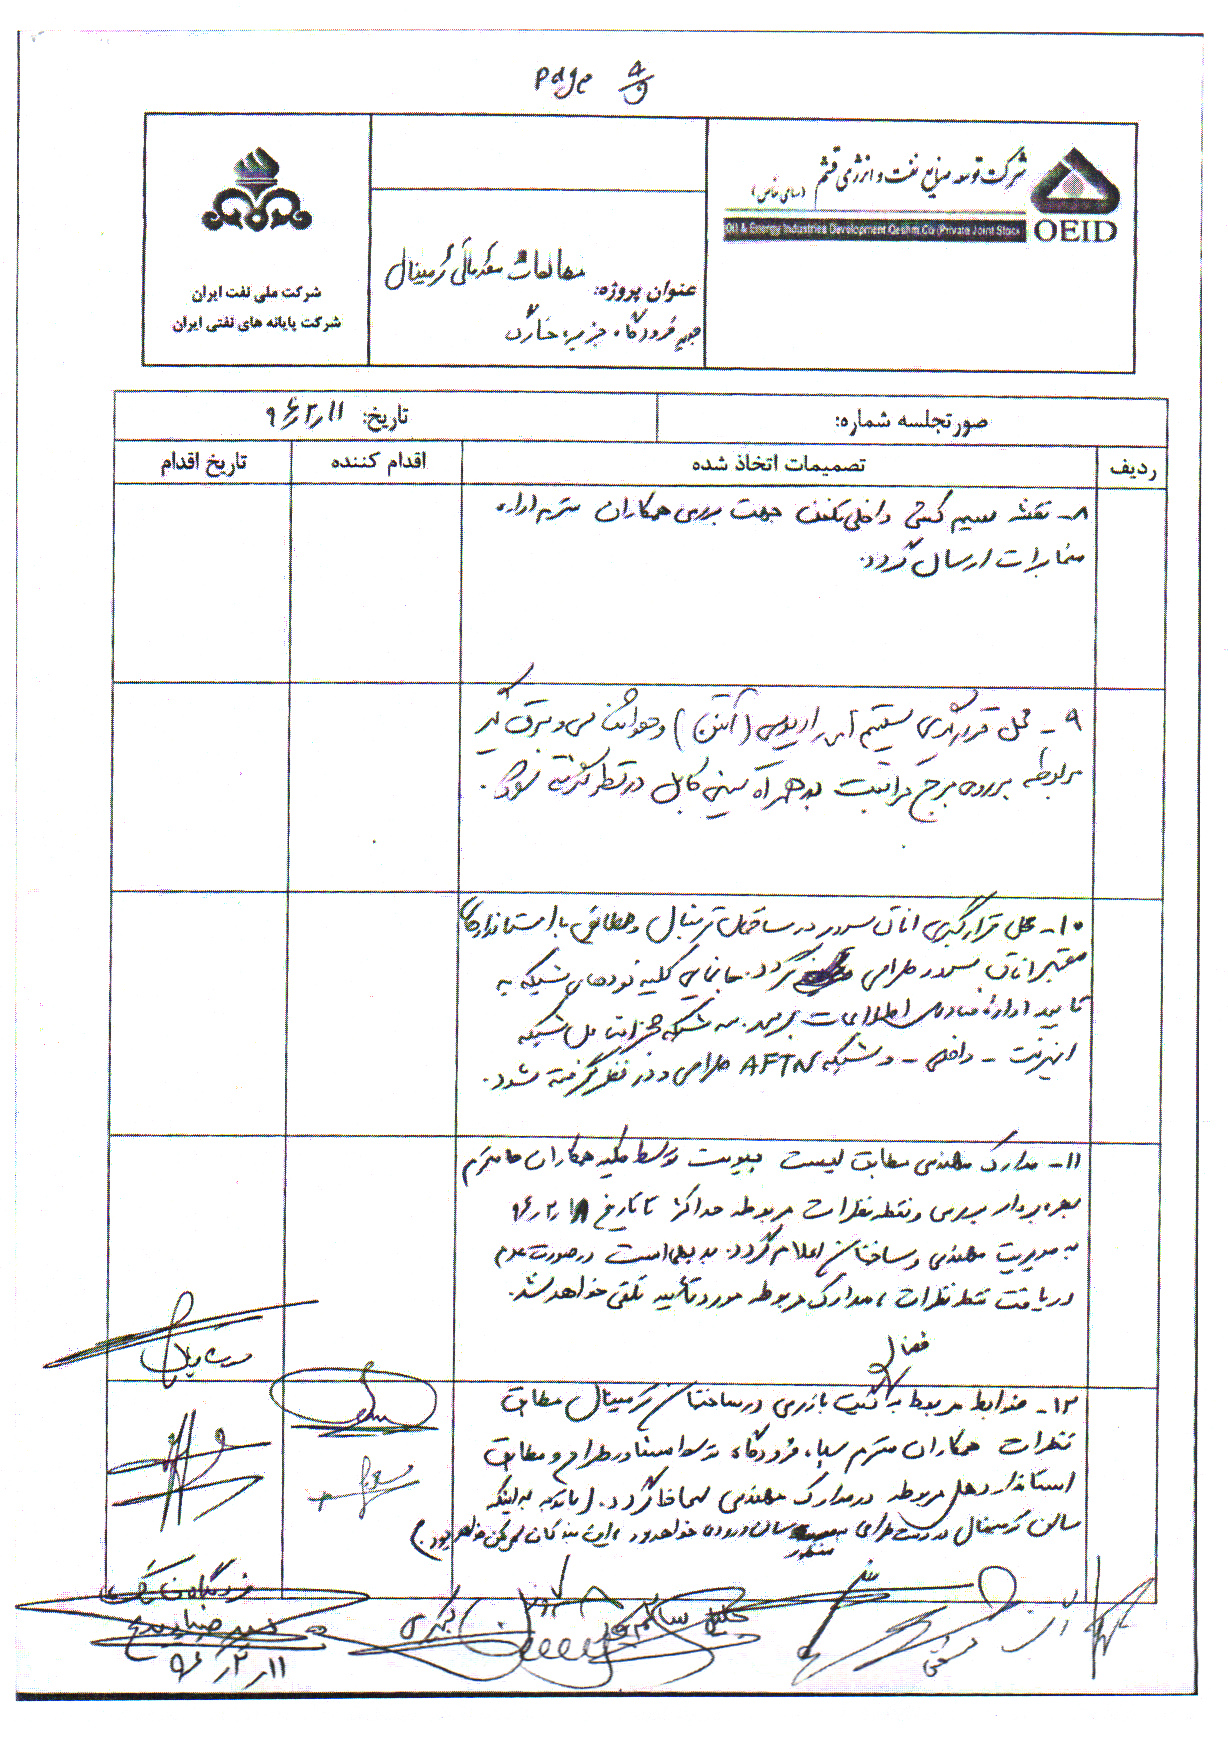 Page ۴/۵
شرکت توسعه صنایع نفت و انرژی قشم
(سهامی خاص)
Oil & Energy Industries Development Qeshm Co (Private Joint Stock
OEID
عنوان پروژه: مطالعات مقدماتی ترمینال
جدید فرودگاه جزیره خارگ
شرکت ملی نفت ایران
شرکت پایانه های نفتی ایران
صورتجلسه شماره:
تاریخ: ۹۶/۲/۱۱
ردیف
تصمیمات اتخاذ شده
اقدام کننده
تاریخ اقدام
۸- نقشه سیم کشی داخلی تلفن جهت بررسی همکاران محترم اداره
مخابرات ارسال گردد.
۹- محل قرارگیری سیستم های رادیویی (آنتن) و برق گیر
مربوطه بر روی برج مراقبت به همراه سینی کابل در نظر گرفته شود.
۱۰- محل قرارگیری اتاق سرور در ساختمان ترمینال و مطابق با استانداردهای
معتبر اتاق سرور طراحی گردد. جانمایی کلیه نودهای شبکه به
تایید اداره فناوری اطلاعات برسد. سه شبکه مجزا شامل شبکه
اینترنت - داخلی - و شبکه AFTN طراحی و در نظر گرفته شود.
۱۱- مدارک مهندسی مطابق لیست پیوست توسط کلیه همکاران محترم
بهره بردار بررسی و نقطه نظرات مربوطه حداکثر تا تاریخ ۹۶/۲/۱۸
به مدیریت مهندسی و ساختمان اعلام گردد. بدیهی است در صورت عدم
دریافت نقطه نظرات، مدارک مربوطه مورد تأیید تلقی خواهد شد.
۱۲- ضوابط مربوط به گیت بازرسی در ساختمان ترمینال مطابق
نظرات همکاران محترم سپاه فرودگاه توسط مشاور طراح و مطابق
استانداردهای مربوطه در مدارک مهندسی لحاظ گردد. (با توجه به اینکه
سالن ترمینال در دست طراحی سالن ورودی خواهد بود، این امکان ممکن خواهد بود.)
فرودگاه خارگ
۹۶/۲/۱۱